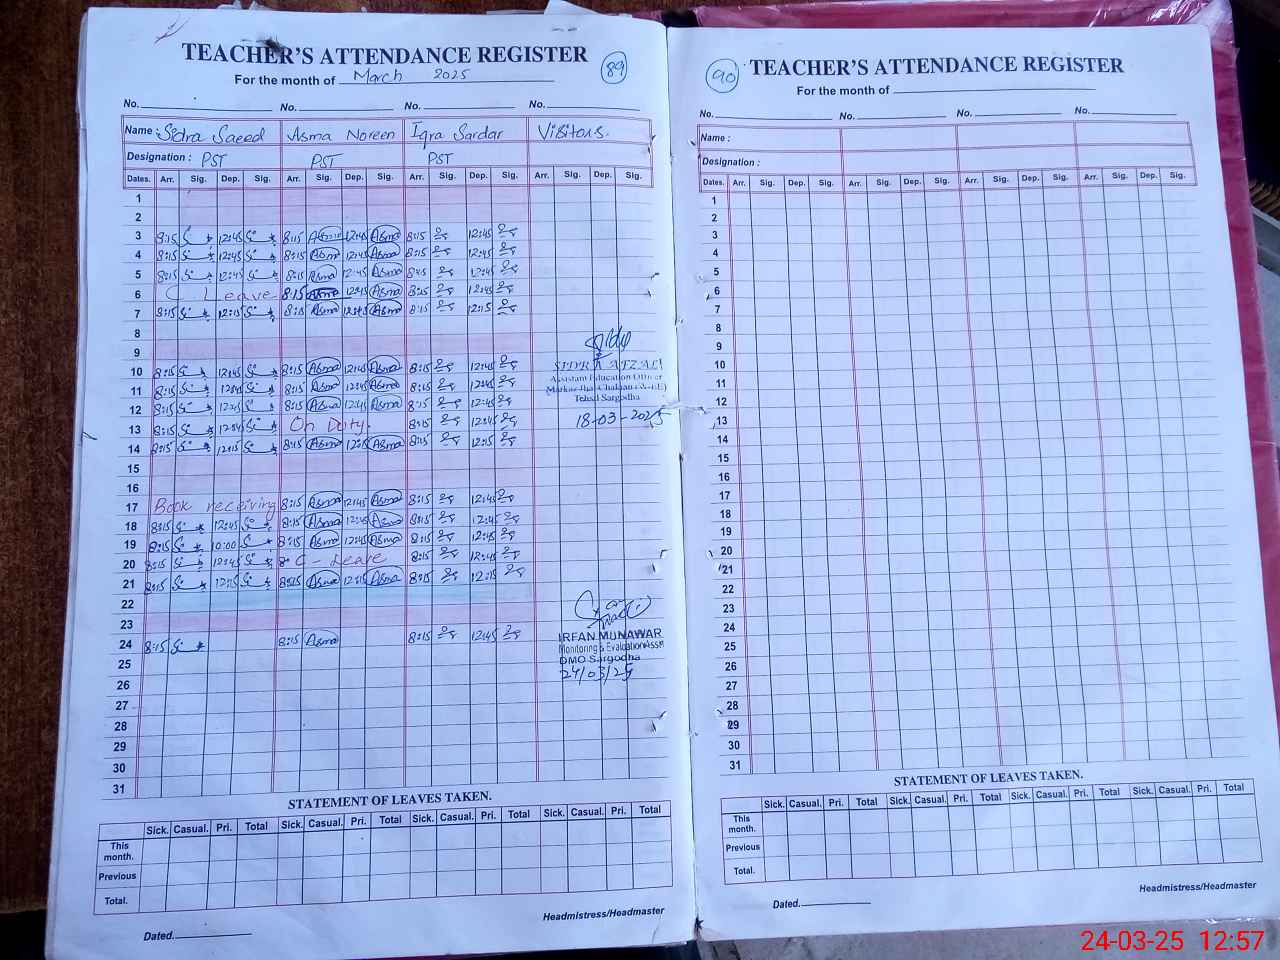 TEACHER'S ATTENDANCE REGISTER
For the month of March 2025
89
No. No. No. No.
Name : Sidra Saeed Asma Noreen Iqra Sardar Visitors.
Designation : PST PST PST
Dates. Arr. Sig. Dep. Sig. Arr. Sig. Dep. Sig. Arr. Sig. Dep. Sig. Arr. Sig. Dep. Sig.
1
2
3 8:15 12:45 8:15 Asma 12:45 Asma 8:15 12:45
4 8:15 12:45 8:15 Asma 12:45 Asma 8:15 12:45
5 8:15 12:45 8:15 Asma 12:45 Asma 8:15 12:45
6 C Leave 8:15 Asma 12:45 Asma 8:15 12:45
7 8:15 12:15 8:15 Asma Asma 8:15 12:15
8
9
10 8:15 12:45 8:15 Asma 12:45 Asma 8:15 12:45
11 8:15 12:45 8:15 Asma 12:45 Asma 8:15 12:45
12 8:15 12:45 8:15 Asma 12:45 Asma 8:15 12:45
13 8:15 12:45 On Duty. 8:15 12:45
14 8:15 12:15 8:15 Asma 12:15 Asma 8:15 12:15
15
16
17 Book receiving 8:15 Asma 12:45 Asma 8:15 12:45
18 8:15 12:45 8:15 Asma 12:45 Asma 8:15 12:45
19 8:15 10:00 8:15 Asma 12:45 Asma 8:15 12:45
20 8:15 12:45 C - Leave 8:15 12:45
21 8:15 12:15 8:15 Asma 12:15 Asma 8:15 12:15
22
23
24 8:15 8:15 Asma 8:15 12:45
25
26
27
28
29
30
31
SIDRA AFZAL
Assistant Education Officer
Tehsil Sargodha
18-03-2025
IRFAN MUNAWAR
Monitoring & Evaluation Asstt
DMO Sargodha
24/03/25
STATEMENT OF LEAVES TAKEN.
Sick. Casual. Pri. Total Sick. Casual. Pri. Total Sick. Casual. Pri. Total Sick. Casual. Pri. Total
This
month.
Previous
Total.
Headmistress/Headmaster
Dated.
90
TEACHER'S ATTENDANCE REGISTER
For the month of
No. No. No. No.
Name :
Designation :
Dates. Arr. Sig. Dep. Sig. Arr. Sig. Dep. Sig. Arr. Sig. Dep. Sig. Arr. Sig. Dep. Sig.
1
2
3
4
5
6
7
8
9
10
11
12
13
14
15
16
17
18
19
20
21
22
23
24
25
26
27
28
29
30
31
STATEMENT OF LEAVES TAKEN.
Sick. Casual. Pri. Total Sick. Casual. Pri. Total Sick. Casual. Pri. Total Sick. Casual. Pri. Total
This
month.
Previous
Total.
Headmistress/Headmaster
Dated.
24-03-25 12:57